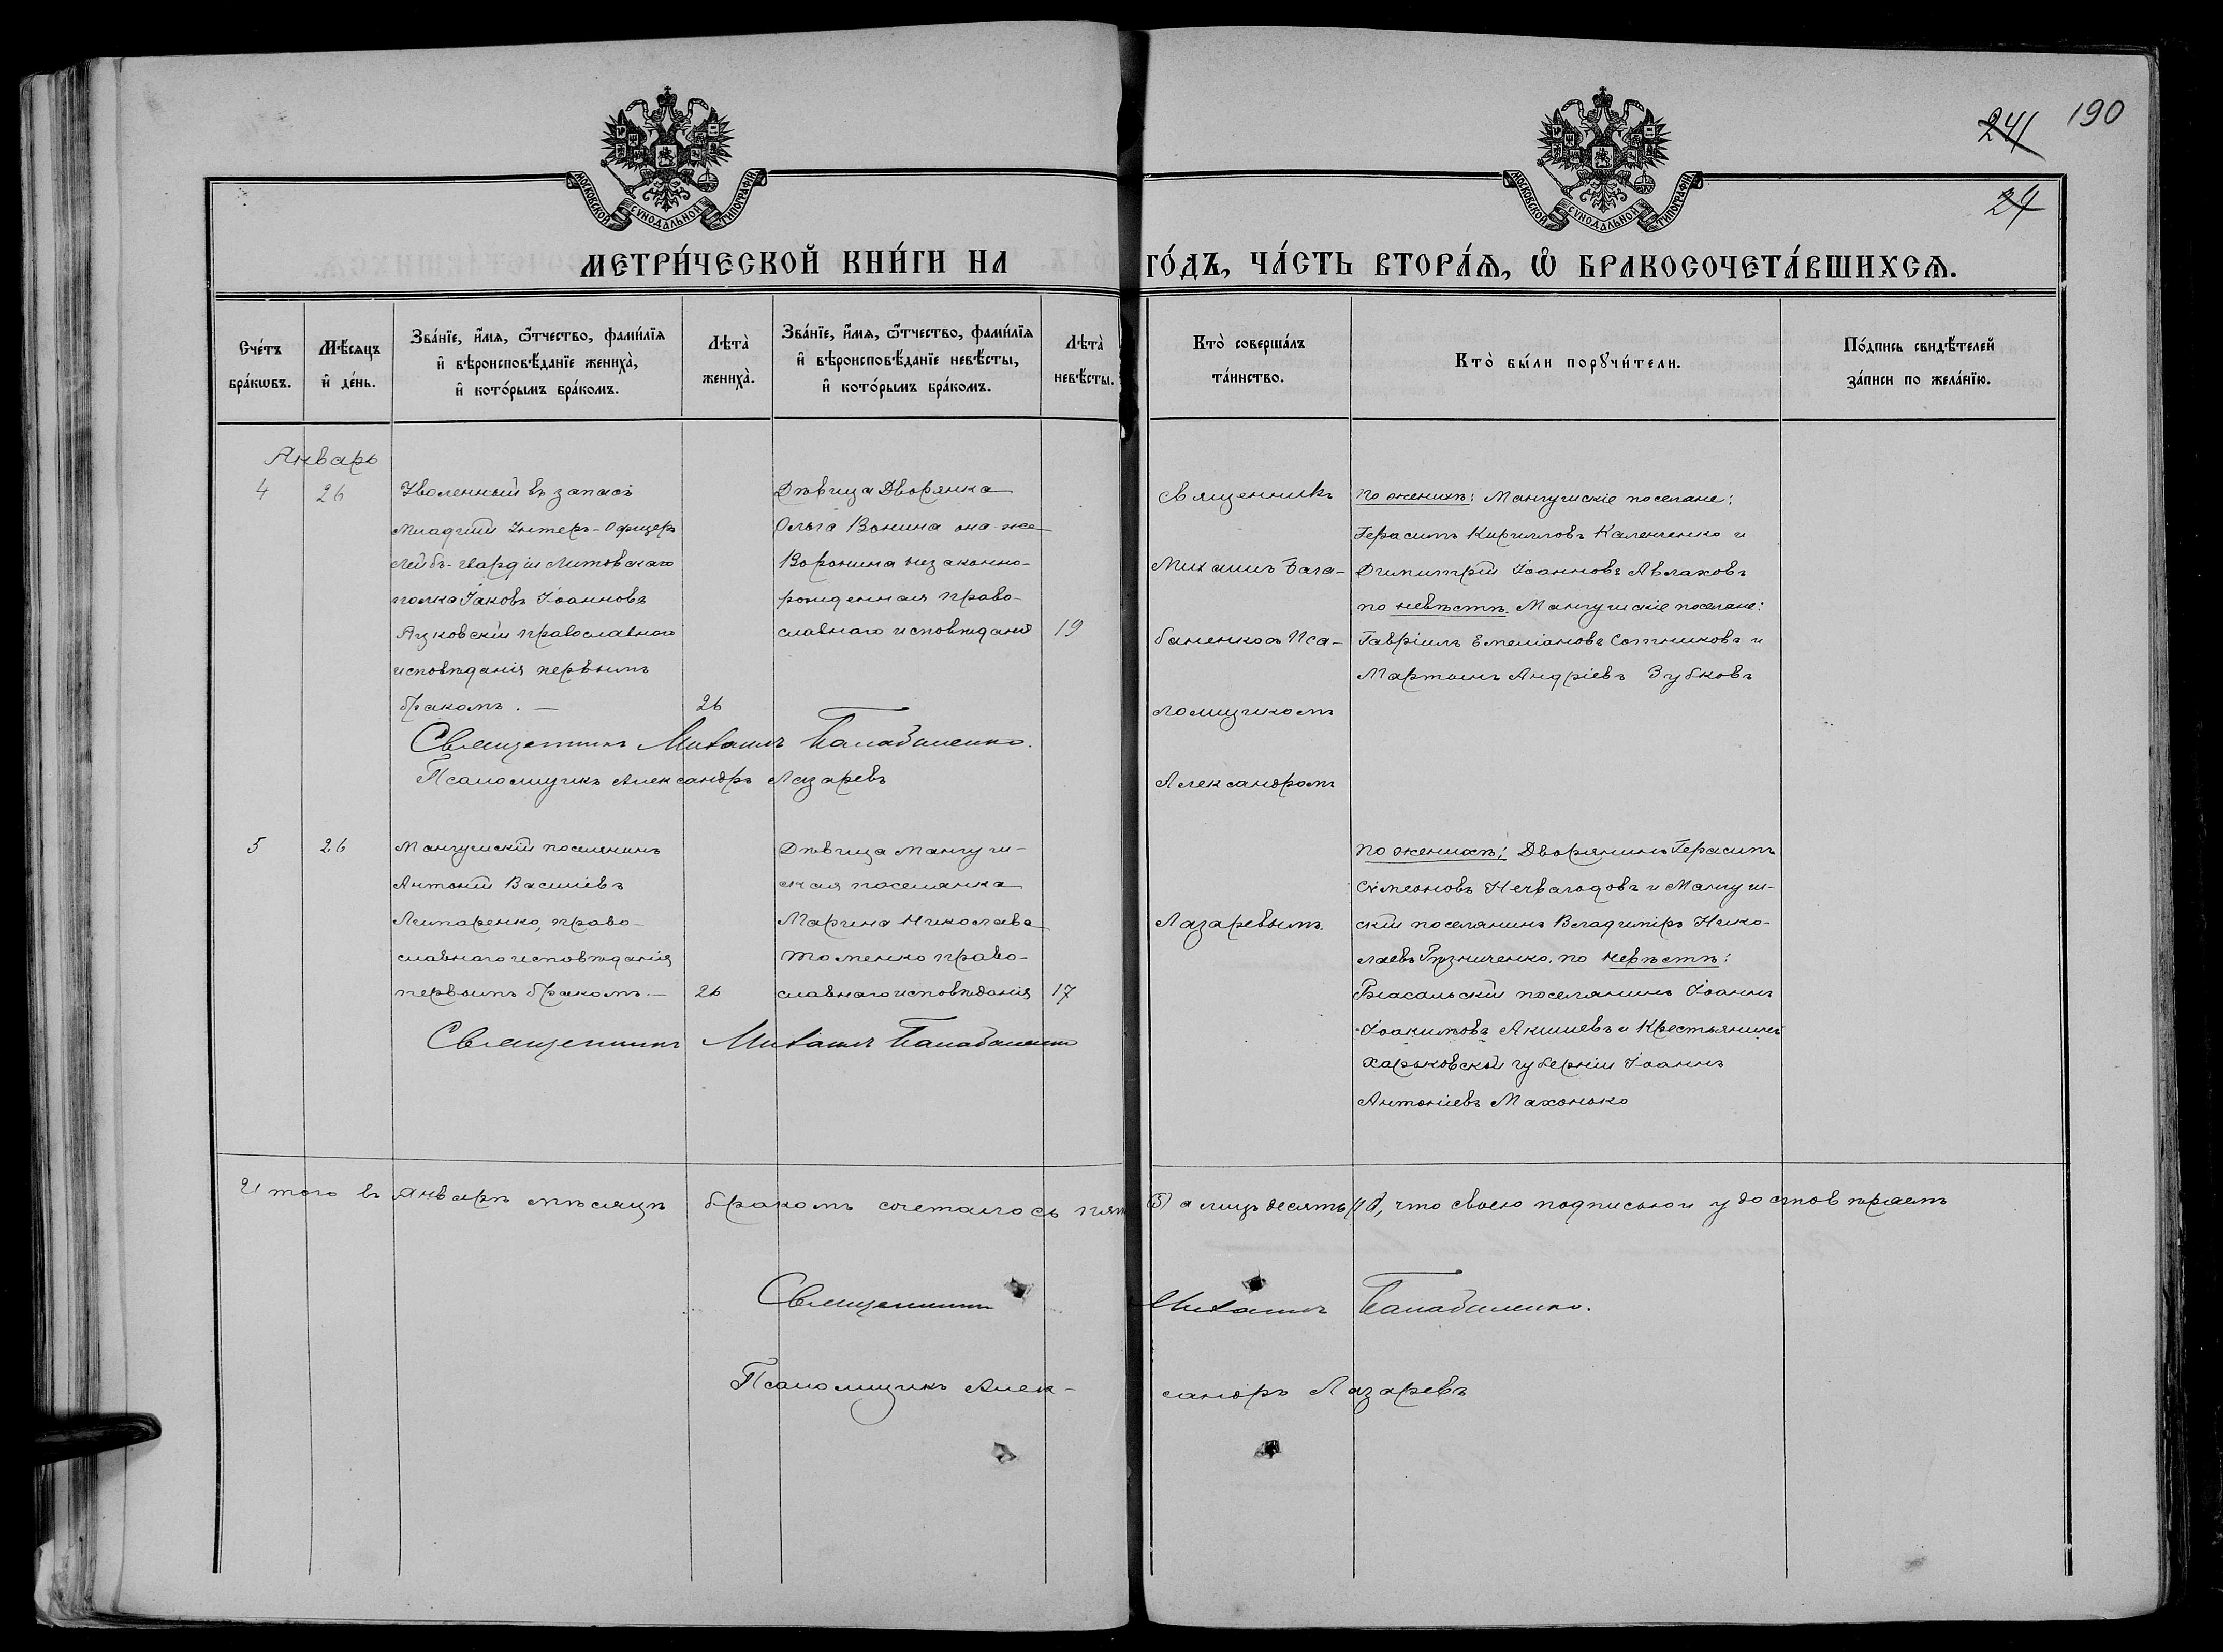 190
241
24
МОСКОВСКОЙ СУНОДАЛЬНОЙ ТИПОГРАФІИ
МОСКОВСКОЙ СУНОДАЛЬНОЙ ТИПОГРАФІИ
МЕТРИ́ЧЕСКОЙ КНИ́ГИ НА ГО́ДЪ, ЧА́СТЬ ВТОРА́Ѧ, Ѽ БРАКОСОЧЕТА́ВШИХСѦ.
Сче́тъ бра́кѡвъ.
Мѣ́сѧцъ и҆ де́нь.
Зва́нїе, и҆́мѧ, ѻ҆́тчество, фами́лїѧ и҆ вѣроисповѣ́данїе жениха̀, и҆ кото́рымъ бра́комъ.
Лѣта̀ жениха̀.
Зва́нїе, и҆́мѧ, ѻ҆́тчество, фами́лїѧ и҆ вѣроисповѣ́данїе невѣ́сты, и҆ кото́рымъ бра́комъ.
Лѣта̀ невѣ́сты.
Кто̀ соверша́лъ та́инство.
Кто̀ бы́ли порꙋчи́тели.
По́дпись свидѣ́телей за́писи по жела́нїю.
Январь
4
26
Уволенный въ запасъ
младшій Унтеръ-Офицеръ
Лейбъ-гвардіи Литовскаго
полка Іаковъ Іоанновъ
Ацковскій православнаго
исповѣданія первымъ
бракомъ. —
26
Дѣвица Дворянка
Ольга Вонина она-же
Воронина незаконно-
рожденная право-
славнаго исповѣданія
19
Священникъ
Михаилъ Бала-
баненко съ Пса-
ломщикомъ
Александромъ
Лазаревымъ.
По женихѣ: Мангушскіе поселяне:
Герасимъ Кирилловъ Каленченко и
Димитрій Іоанновъ Авлаховъ
по невѣстѣ. Мангушскіе поселяне:
Гавріилъ Емеліановъ Сотниковъ и
Мартынъ Андріевъ Зубковъ
Священникъ Михаилъ Балабаненко.
Псаломщикъ Александръ Лазаревъ
5
26
Мангушскій поселянинъ
Антоній Василіевъ
Липаренко, право-
славнаго исповѣданія
первымъ бракомъ.—
26
Дѣвица Мангуш-
ская поселянка
Марина Николаева
Томенко право-
славнаго исповѣданія
17
По женихѣ: Дворянинъ Герасимъ
Симеоновъ Нечваладовъ и Мангуш-
скій поселянинъ Владиміръ Нико-
лаевъ Рѣзниченко. по невѣстѣ:
Біасальскій поселянинъ Іоаннъ
Іоакимовъ Акишевъ и Крестьянинъ
Харьковской губерніи Іоаннъ
Антоніевъ Махонько
Священникъ Михаилъ Балабаненко
Итого въ январѣ мѣсяцѣ бракомъ сочеталось пять (5) а лицъ десять (10), что своею подписью и удостовѣряемъ
Священникъ Михаилъ Балабаненко.
Псаломщикъ Александръ Лазаревъ